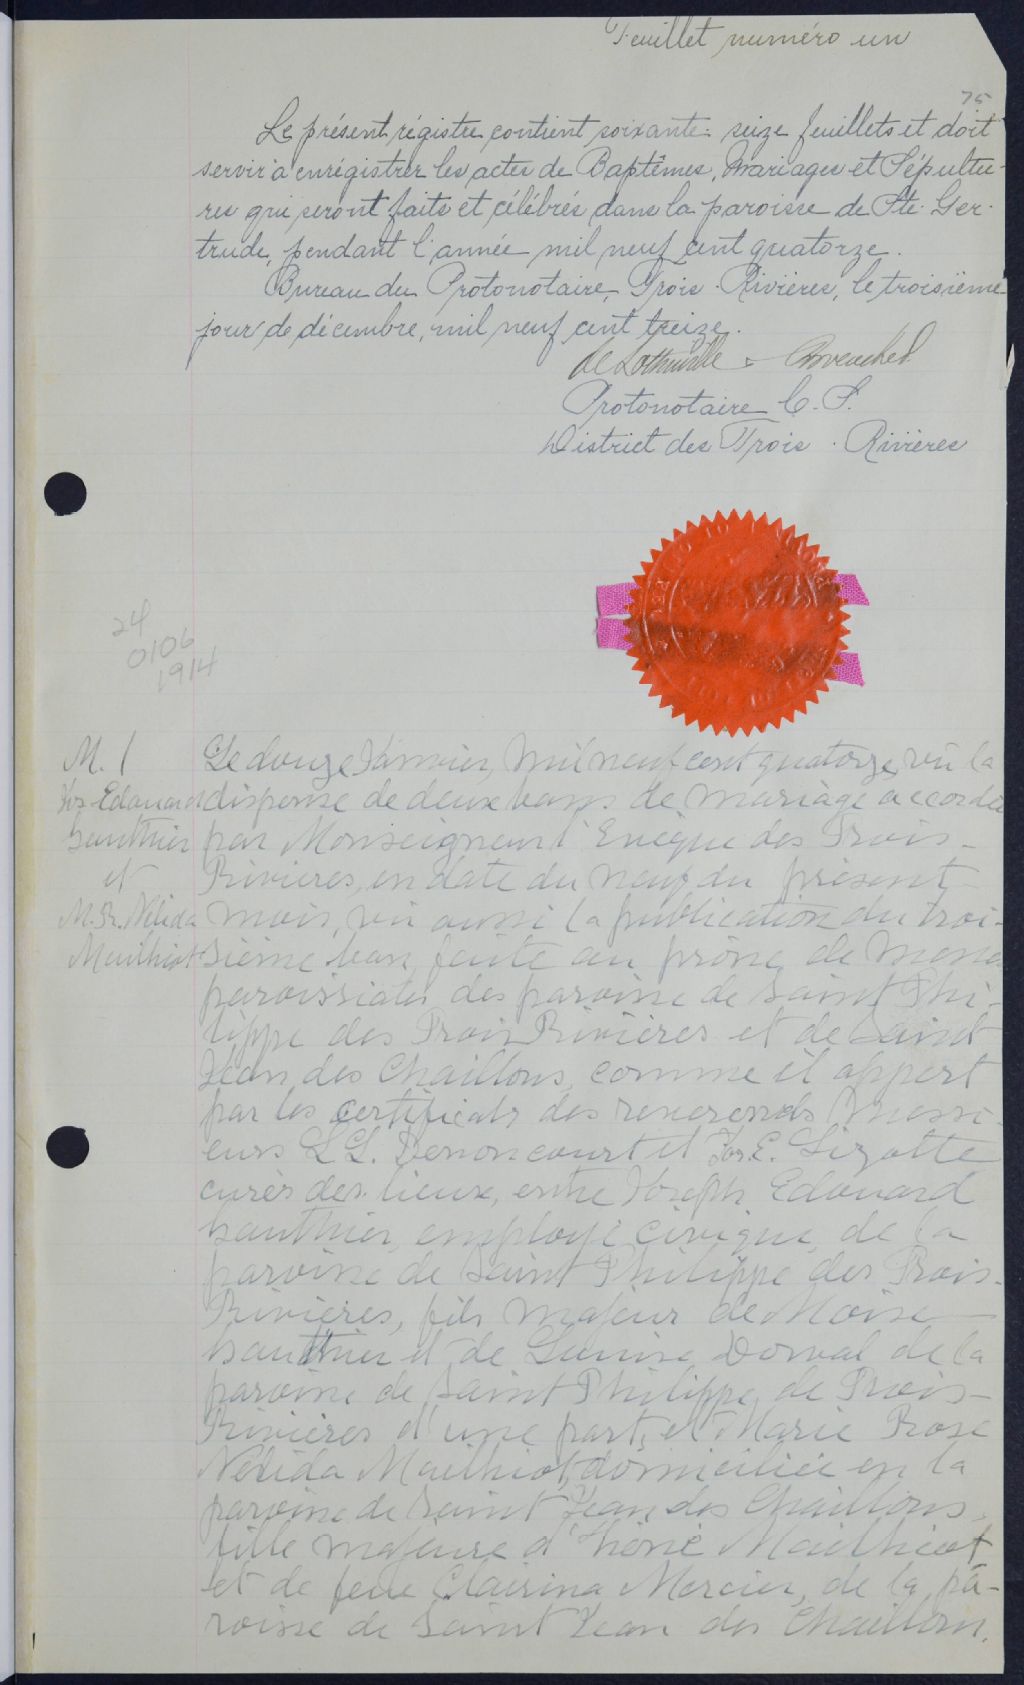 Feuillet numéro un
75
Le présent régistre contient soixante-seize feuillets et doit
servir à enrégistrer les actes de Baptêmes, Mariages et Sépultu-
res qui seront faits et célébrés dans la paroisse de Ste-Ger-
trude, pendant l'année mil neuf cent quatorze.
Bureau du Protonotaire, Trois-Rivières, le troisième
jour de décembre, mil neuf cent treize.
Protonotaire C. S.
District des Trois-Rivières
24
0106
1914
M. 1
Jos-Edouard
Gauthier
et
M. R. Nélida
Mailhiot
Le douze Janvier, mil neuf cent quatorze, vu la
dispense de deux bans de mariage accordée
par Monseigneur l'Evêque des Trois-
Rivières, en date du neuf du présent
mois, vu aussi la publication du troi-
sième ban, faite au prône de messe
paroissiales des paroisse de Saint Phi-
lippe des Trois Rivières et de Saint
Jean des Chaillons, comme il appert
par les certificats des reverends Messi-
eurs L. L. Denoncourt et Jos. E. Lizotte
curés des lieux, entre Joseph Edouard
Gauthier, employé civique de la
paroisse de Saint Philippe des Trois-
Rivières, fils majeur de Moise
Gauthier et de Louise Dorval de la
paroisse de Saint Philippe de Trois-
Rivières d'une part, et Marie Rose
Nélida Mailhiot, domiciliée en la
paroisse de Saint Jean des Chaillons,
fille majeure d' Mailhiot
et de feue Clairina Mercier, de la pa-
roisse de Saint Jean des Chaillons.